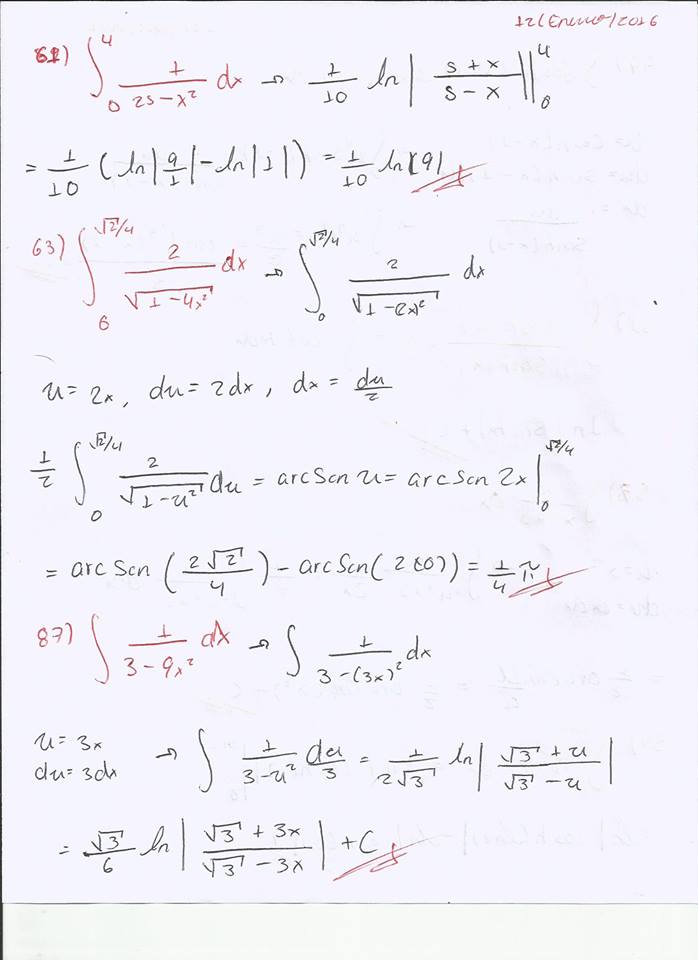 12/Enero/2016
61) ∫₀⁴ 1/(25-x²) dx → 1/10 ln|(5+x)/(5-x)||₀⁴
= 1/10 (ln|9/1| - ln|1|) = 1/10 ln|9|
63) ∫₀^(√2/4) 2/√(1-4x²) dx → ∫₀^(√2/4) 2/√(1-(2x)²) dx
u = 2x, du = 2dx, dx = du/2
1/2 ∫₀^(√2/4) 2/√(1-u²) du = arcSen u = arcSen 2x|₀^(√2/4)
= arcSen (2√2/4) - arcSen(2(0)) = 1/4 π
87) ∫ 1/(3-9x²) dx → ∫ 1/(3-(3x)²) dx
u = 3x
du = 3dx → ∫ 1/(3-u²) du/3 = 1/(2√3) ln|(√3+u)/(√3-u)|
= √3/6 ln|(√3+3x)/(√3-3x)| + C